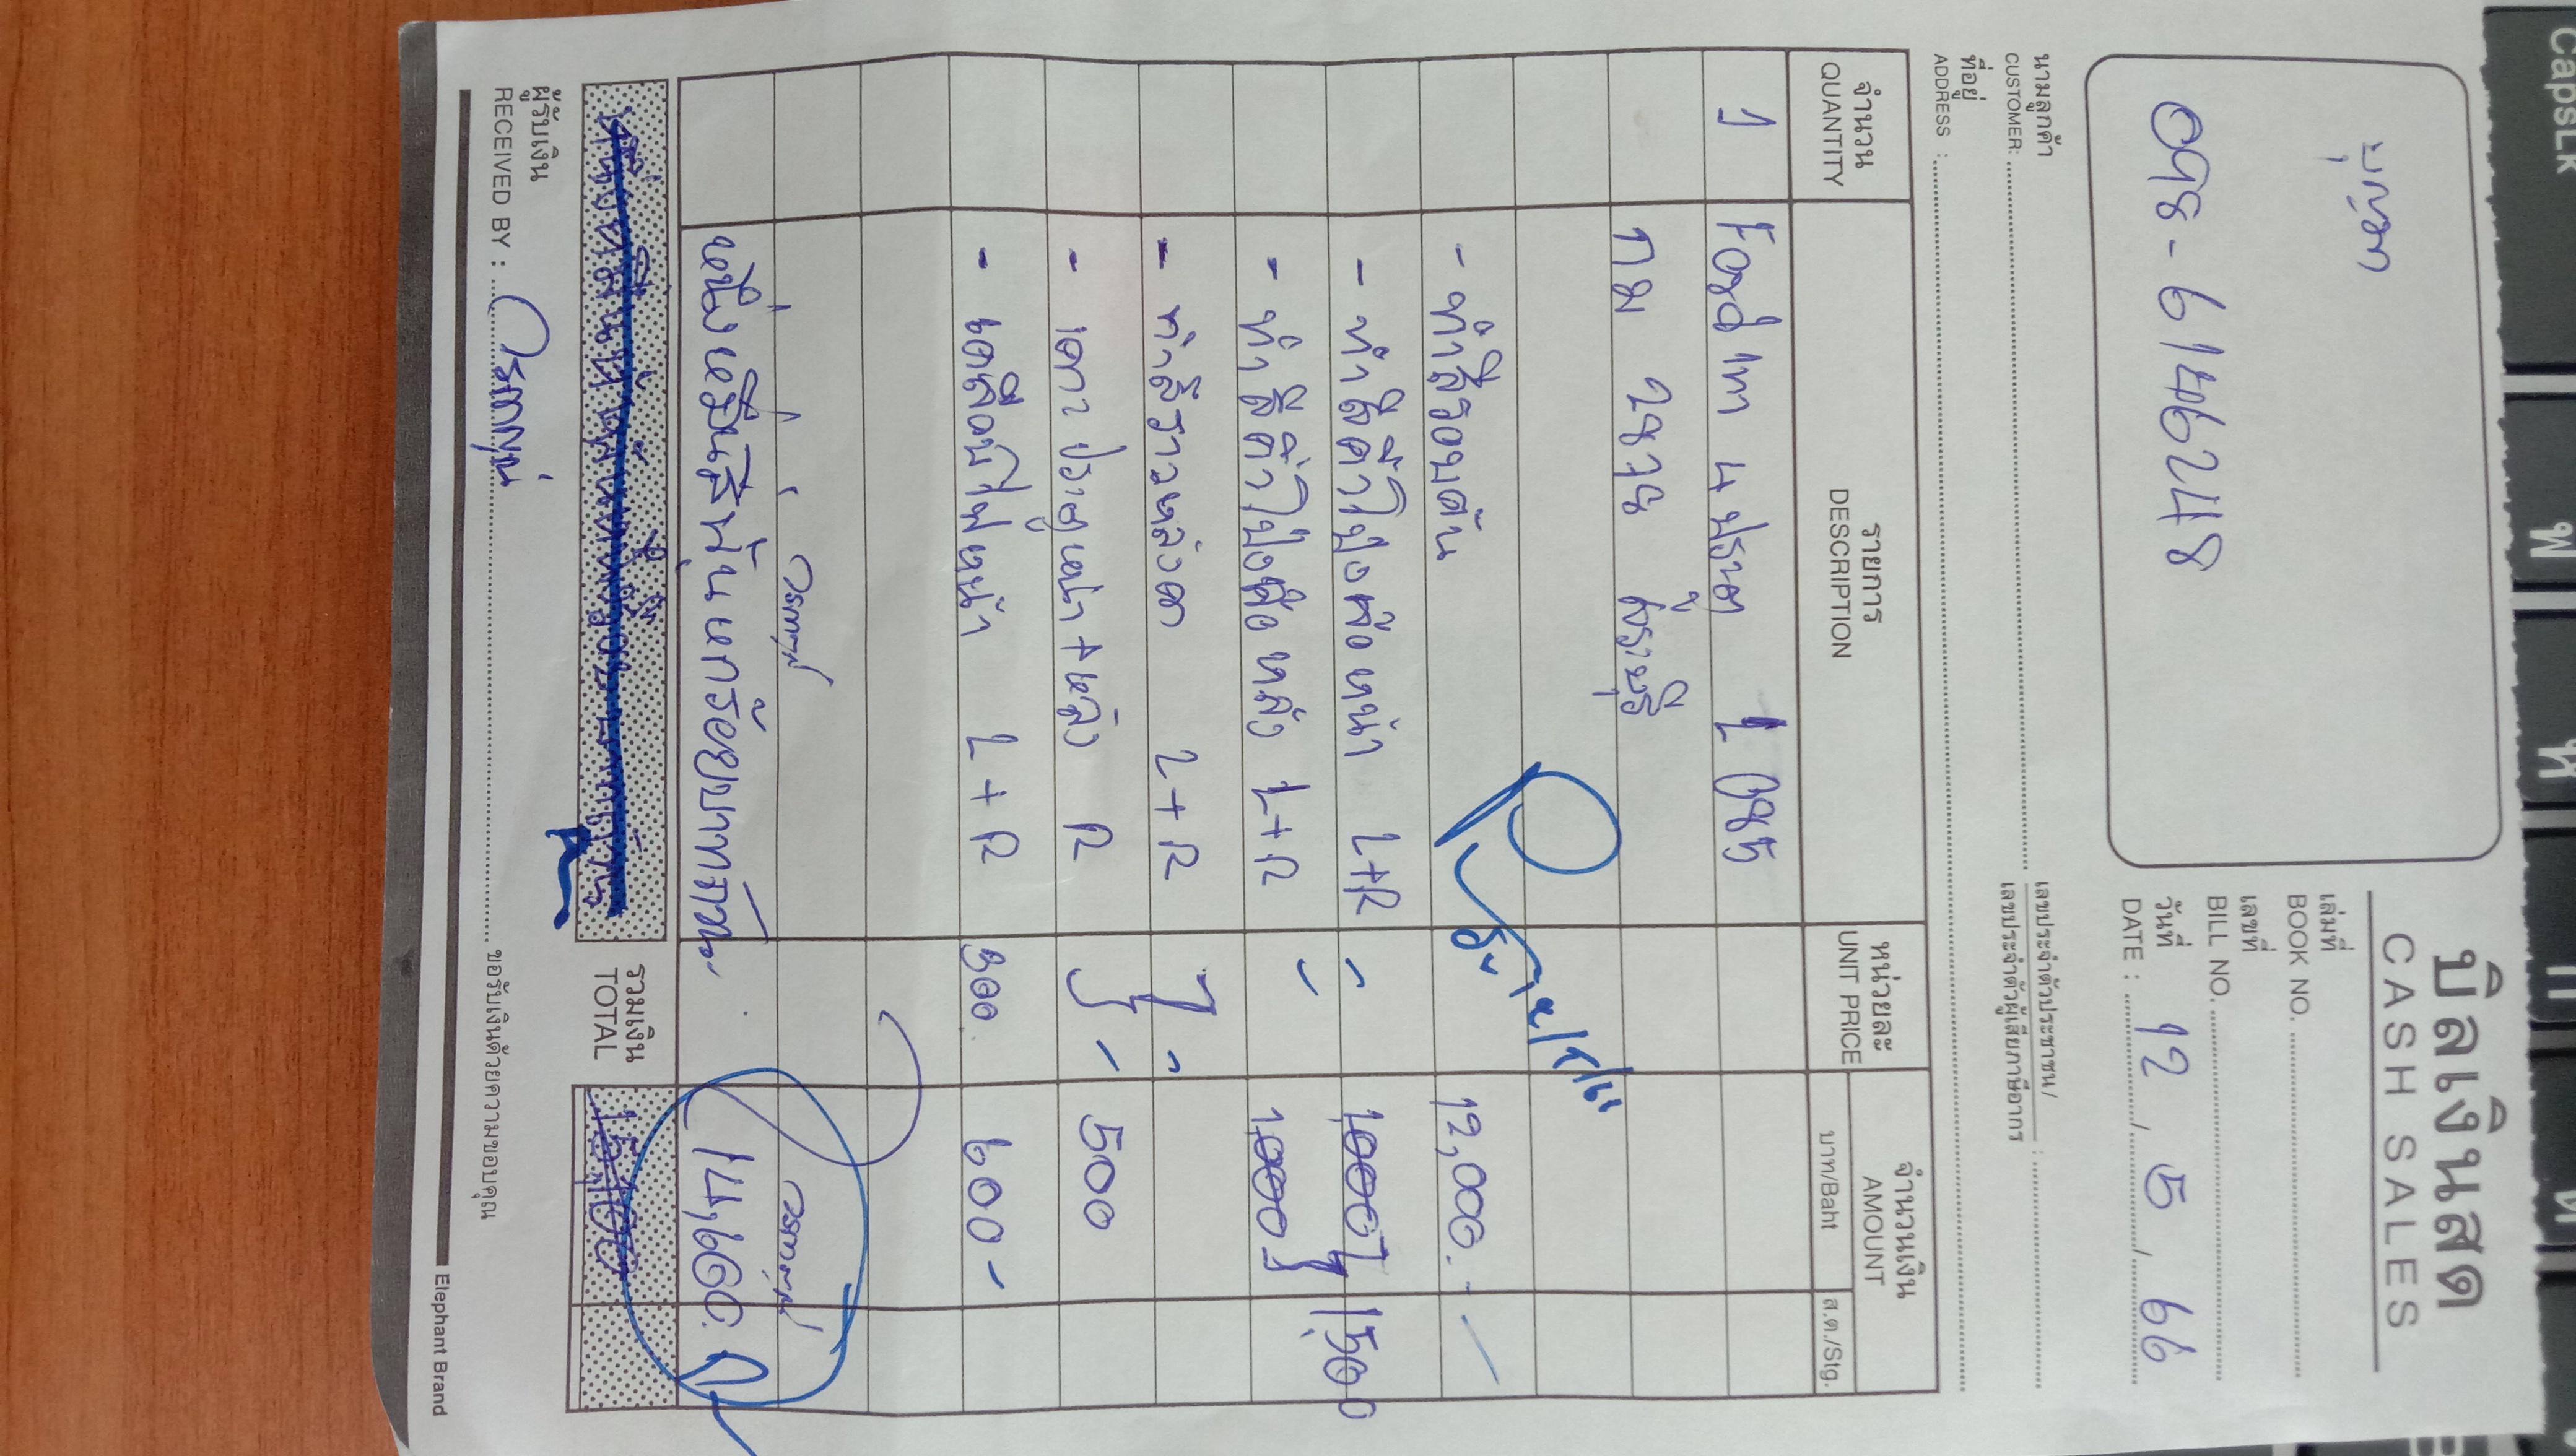 บิลเงินสด
CASH SALES
บุญมา
098-6146248
เล่มที่
BOOK NO.
เลขที่
BILL NO.
วันที่
DATE : 12 / 5 / 66
นามลูกค้า
CUSTOMER:
เลขประจำตัวประชาชน/
เลขประจำตัวผู้เสียภาษีอากร :
ที่อยู่
ADDRESS :
จำนวน
QUANTITY
รายการ
DESCRIPTION
หน่วยละ
UNIT PRICE
จำนวนเงิน
AMOUNT
บาท/Baht
ส.ต./Stg.
1 Ford เทา 4 ประตู 1 085
กม
- ทำสีรอบคัน 12,000.-
- ทำสีคิ้วโป่งล้อหน้า L+R 1,000 1,500
- ทำสีคิ้วโป่งล้อหลัง L+R 1,000
- ทำสีราวหลังคา L+R
- เสา ประตูหน้า+หลัง R 500
- เคลือบไฟหน้า L+R 300 600-
หนึ่งหมื่นสี่พันหกร้อยบาทถ้วน 14,600.
รวมเงิน
TOTAL
15,100
ผู้รับเงิน
RECEIVED BY :
ขอรับเงินด้วยความขอบคุณ
Elephant Brand
CapsLk
พ
ห
ก